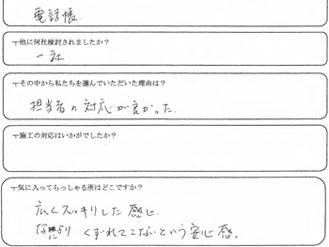 電話帳.
他に何社検討されましたか？
一社
その中から私たちを選んでいただいた理由は？
担当者の対応が良かった.
施工の対応はいかがでしたか？
気に入ってらっしゃる所はどこですか？
広くスッキリした感じ.
くずれてこないという安心感.